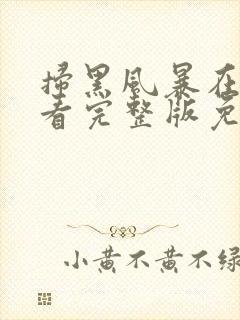 掃黑風暴在
看完整版免
小黄不黄不绿